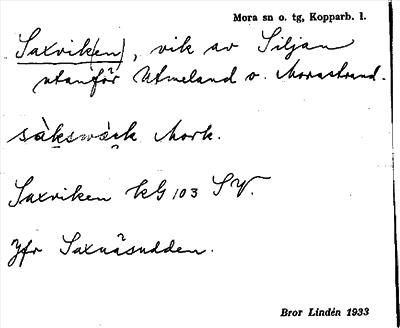 Mora sn o. tg, Kopparb. l.
Saxvik(en), vik av Siljan
utanför Utmeland o. Morastrand.
sàkswàck Mork.
Saxviken kG 103 SV.
Jfr Saxnäsudden.
Bror Lindén 1933